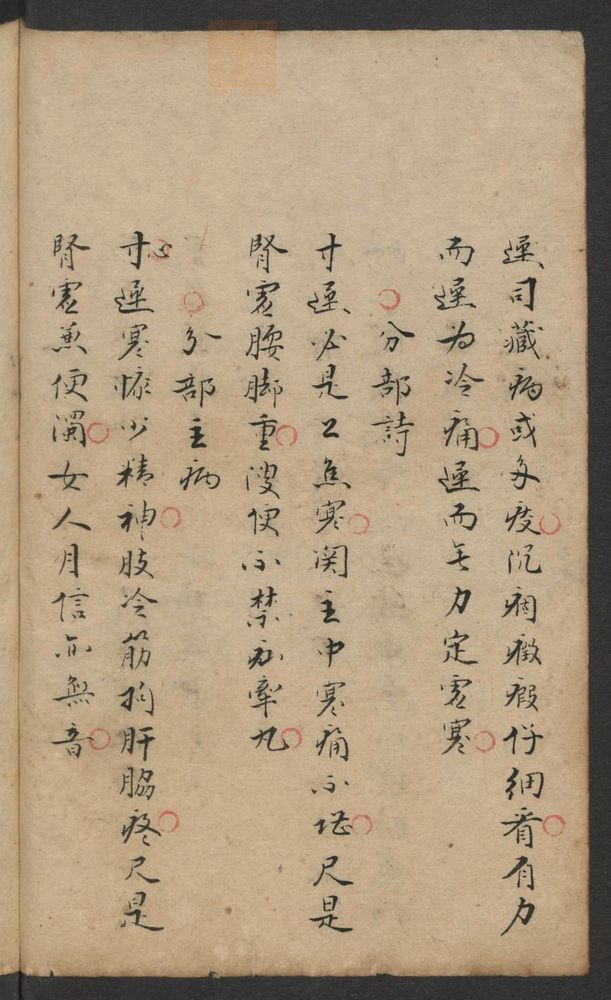 遲司藏病或多痰○沉痼癥瘕仔細看○有力
而遲为冷痛○遲而无力定虛寒○
○分部詩
寸遲必是上焦寒○関主中寒痛不堪○尺是
腎虛腰脚重○溲便不禁疝牽丸○
○分部主病
寸心遲寒惊少精神○肢冷筋拘肝脇疼○尺是
腎虛兼便濁○女人月信亦無音○